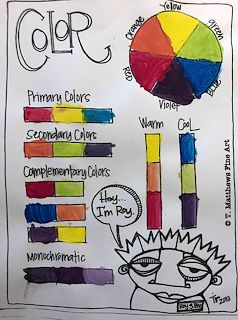 COLOR
Yellow
orange
green
Red
Blue
Violet
Primary Colors
Secondary Colors
Complementary Colors
Monochromatic
Warm
Cool
Hey...
I'm Roy.
ROY G BIV
© T. Matthews Fine Art